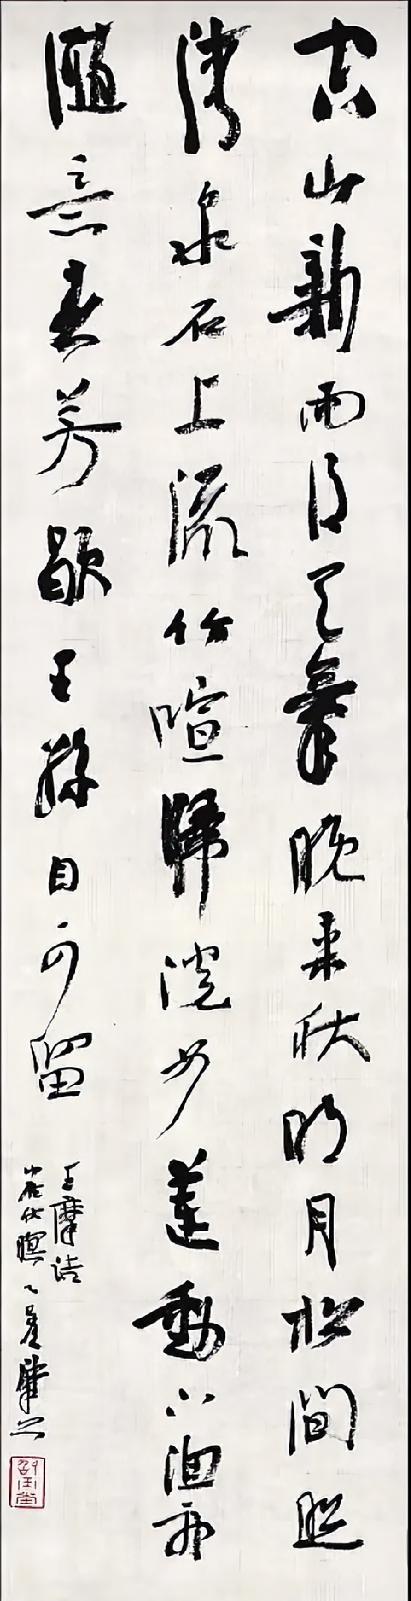 空山新雨後天氣晚来秋明月松間照
清泉石上流竹喧歸浣女蓮動下漁舟
隨意春芳歇王孫自可留
王摩詰
山居秋暝